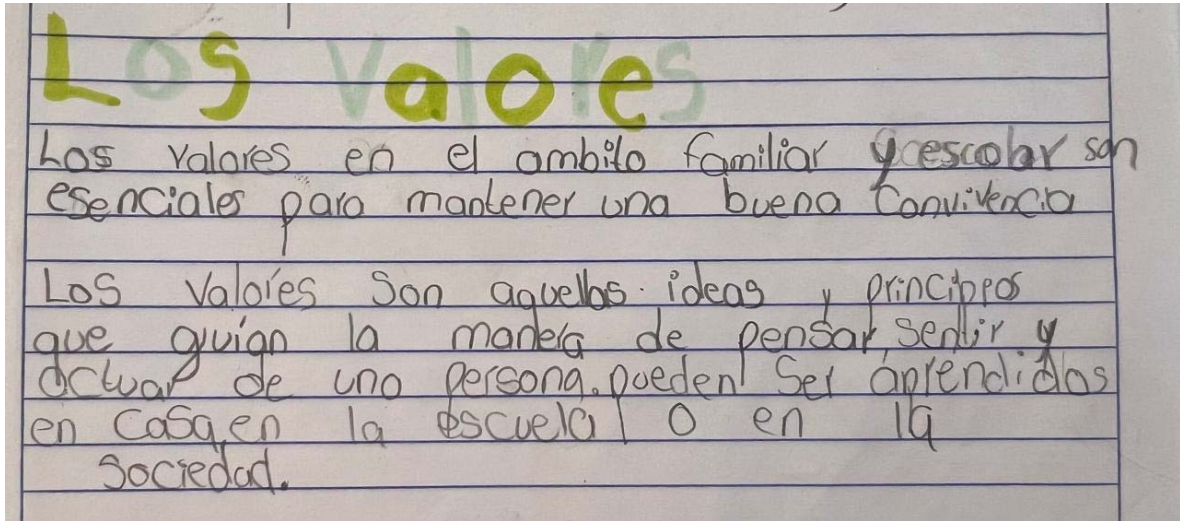 Los Valores
Los valores en el ambito familiar y escolar son
esenciales para mantener una buena Convivencia
Los valores son aquellas ideas y principios
que guian la manera de pensar, sentir y
actuar de una persona. pueden ser aprendidos
en casa, en la escuela o en la
sociedad.